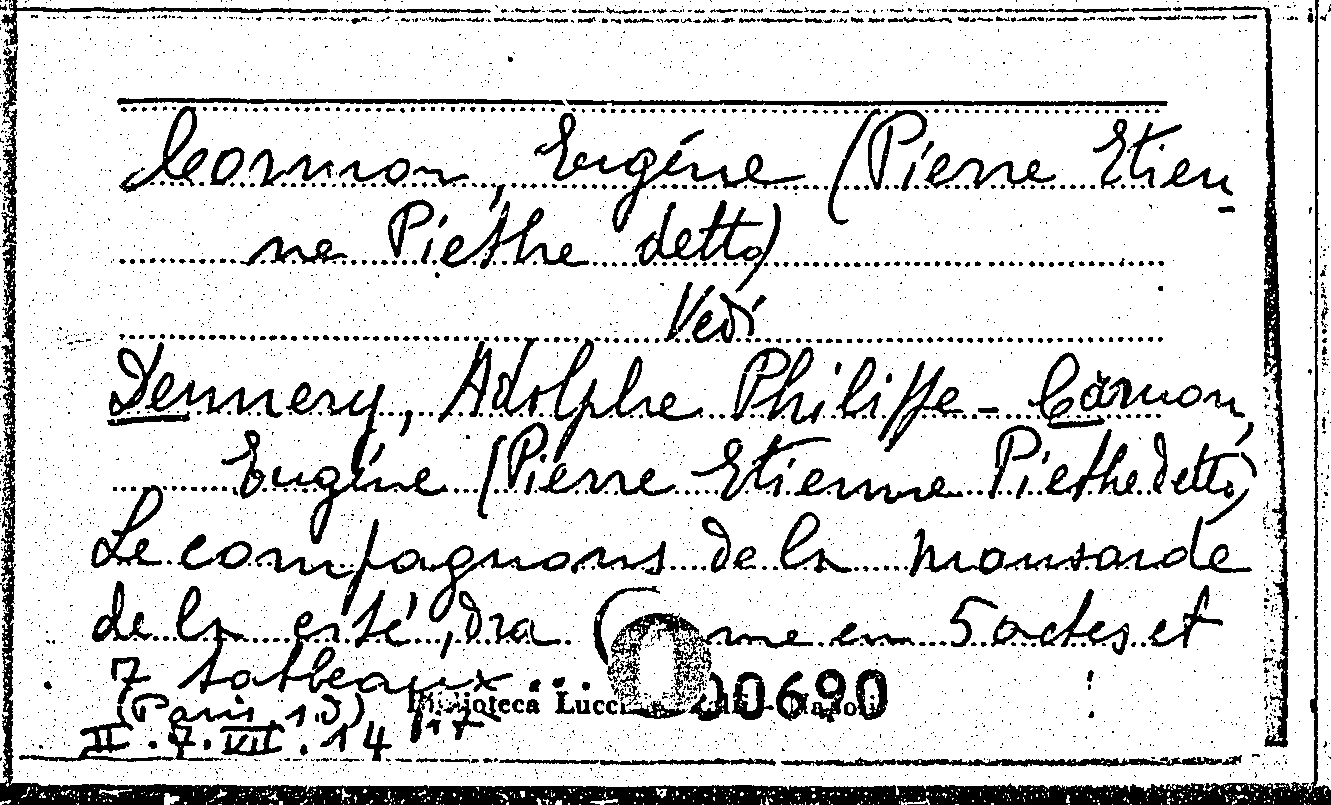 Cormon, Eugène (Pierre Etien-
ne Piesthe detto)
Vedi
Dennery, Adolphe Philippe - Cormon,
Eugène (Pierre Etienne Piesthe detto)
Le compagnons de la mansarde
de la cité, dra ( me en 5 actes et
7 tatbeaux...
(Paris, s.d)
Biblioteca Lucchesi Palli - Napoli 00690
II.7.VII.14 /17